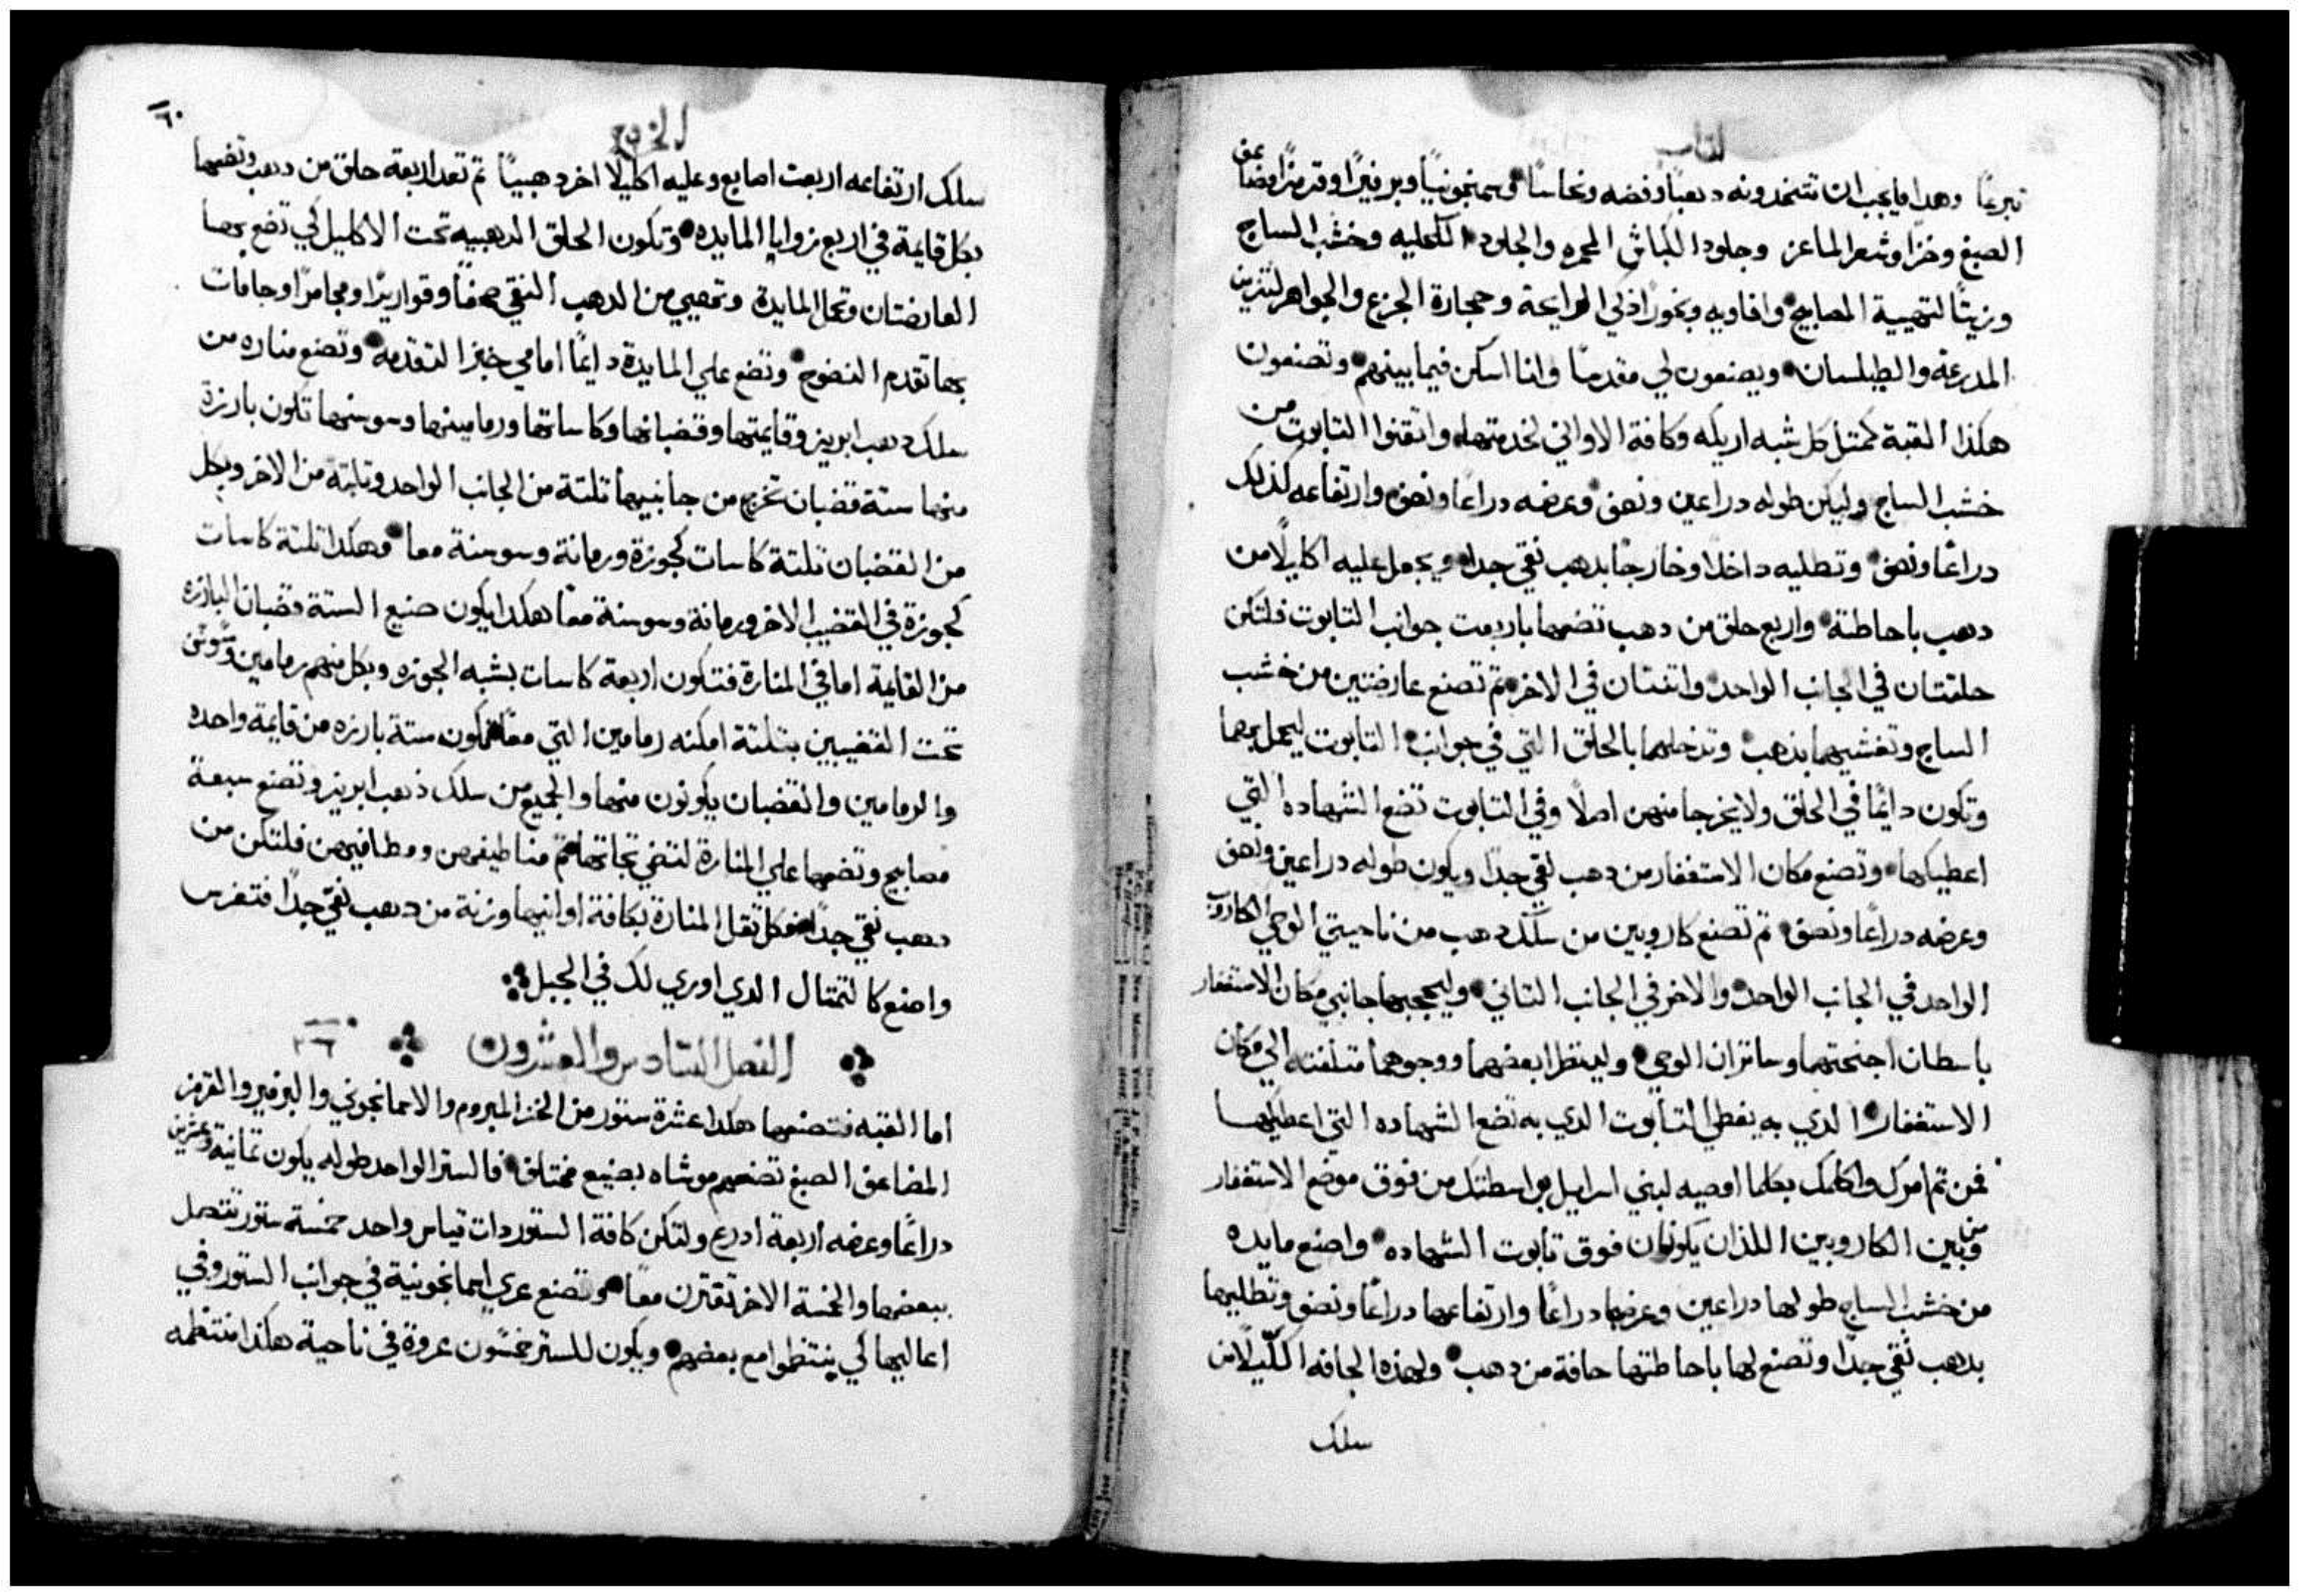 كتاب
تبرعًا وهدا مايجب ان تتخدونه دهبًا وفضه ونحاسًا وسمنجونيًا وبرفيرًا وقرمزًا مضاعف
الصبغ وخزًا وشعر الماعز وجلود الكباش المحمره والجلود الكحليه وخشب الساج
وزيتًا لتهيية المصابيح وافاويه وبخورًا ذكي الرايحة وحجارة الجزع والجواهر لتزين
المدرعة والطيلسان ويصنعون لي مقدسًا وانا اسكن فيما بينهم وتصنعون
هكذا القبة كمتل كل شبه اريكه وكافة الاواني لخدمتها واتقنوا التابوت من
خشب الساج وليكن طوله دراعين ونصف وعرضه دراعًا ونصف وارتفاعه كذلك
دراعًا ونصف وتطليه داخلًا وخارجًا بدهب نقي جدا ويجعل عليه اكليلًا من
دهب باحاطتة واربع حلق من دهب تضعها باربعت جوانب التابوت فلتكن
حلقتان في الجانب الواحد واتنتان في الاخر تم تصنع عارضتين من خشب
الساج وتغشيهما بدهب وتدخلهما بالحلق التي في جوانب التابوت ليحمل بهما
وتكون دايمًا في الحلق ولا يخرجا منهن اصلًا وفي التابوت تضع الشهاده التي
اعطيكها وتصنع مكان الاستغفار من دهب نقي جدًا ويكون طوله دراعين ونصف
وعرضه دراعًا ونصف تم تصنع كاروبين من سلك دهب من ناحيتي الوحي الكاروب
الواحد في الجانب الواحد والاخر في الجانب التاني وليحجبهما جانبي مكان الاستغفار
باسطان اجنحتهما وساتران الوحي ولينظرا بعضهما ووجوههما متلفته الي مكان
الاستغفار الدي به يغطي التابوت الدي به تضع الشهاده التي اعطيكها
فمن تم امرك واكلمك بكلما اوصيه لبني اسراييل بواسطتك من فوق موضع الاستغفار
ومن بين الكاروبين اللذان يكونان فوق تابوت الشهاده واصنع مايده
من خشب الساج طولها دراعين وعرضها دراعًا وارتفاعها دراعًا ونصف وتطليها
بدهب نقي جدًا وتصنع لها باحاطتها حافة من دهب ولهذه الحافه اكليلًا من
سلك
الخروج
٦٠
سلك ارتفاعه اربعت اصابع وعليه اكليلًا اخر دهبيًا تم تعد اربعة حلق من دهب وتضعها
بكل قايمة في اربع زوايا المايده وتكون الحلق الدهبيه تحت الاكليل لكي تضع بها
العارضتان وتحمل المايدة وتهيي من الدهب النقي صحفًا وقواريرًا ومجامرًا وجامات
بها تقدم النضوح وتضع علي المايدة دايمًا امامي خبز التقدمه وتضع مناره من
سلك دهب ابريز وقايمتها وقضبانها وكاساتها ورمامينها وسوسنها تكون بارزة
منها ستة قضبان تخرج من جانبيها تلتة من الجانب الواحد وتلتة من الاخر وبكل
من القضبان تلتة كاسات كجوزة ورمانة وسوسنة معا وهكدا تلتة كاسات
كجوزة في القضيب الاخر ورمانة وسوسنة معًا هكدا يكون صنيع الستة قضبان البارزه
من القايمة اما في المنارة فتكون اربعة كاسات بشبه الجوزه وبكل منهم رمامين وسوسن
تحت القضيبين بتلتة امكنه رمامين التي معًا يكون ستة بارزه من قايمة واحده
والرمامين والقضبان يكونون منها والجميع من سلك ذهب ابريز وتصنع سبعة
مصابيح وتضعها علي المنارة لتضي تجاتها تم مناطيفهن ومطافيهن فلتكن من
دهب نقي جدًا فكل ثقل المنارة بكافة اوانيها وزنة من دهب نقي جدًا فتفرس
واصنع كالتمتال الدي اوري لك في الجبل
الفصل السادس والعشرون ٢٦
اما القبه فتصنعها هكدا عشرة ستور من الخز المبروم والاسمانجوني والبرفير والقرمز
المضاعف الصبغ تضعهم موشاه بصنيع مختلف فالستر الواحد طوله يكون تمانية وعشرين
دراعًا وعرضه اربعة ادرع ولتكن كافة الستور دات قياس واحد خمسة ستور تتصل
ببعضها والخمسة الاخر تقترن معًا وتصنع عري اسمانجونية في جوانب الستور وفي
اعاليها لكي ينتظموا مع بعضهم ويكون للستر خمسون عروة في ناحية هكذا منتظمه